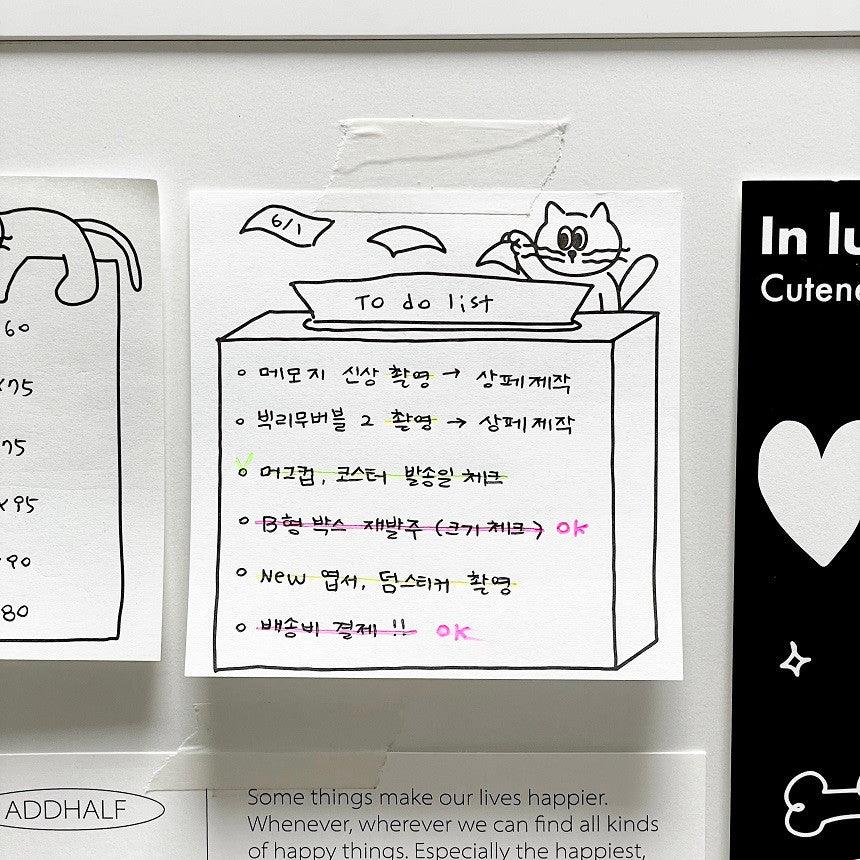 6/1
To do list
메모지 신상 촬영 → 상페제작
빅리무버블 2 촬영 → 상페제작
머그컵, 코스터 발송일 체크
B형 박스 재발주 (크기 체크) OK
New 엽서, 덤스티커 촬영
배송비 결제 !! OK
60
x75
75
x95
90
80
In lu
Cutene
ADDHALF
Some things make our lives happier.
Whenever, wherever we can find all kinds
of happy things. Especially the happiest,